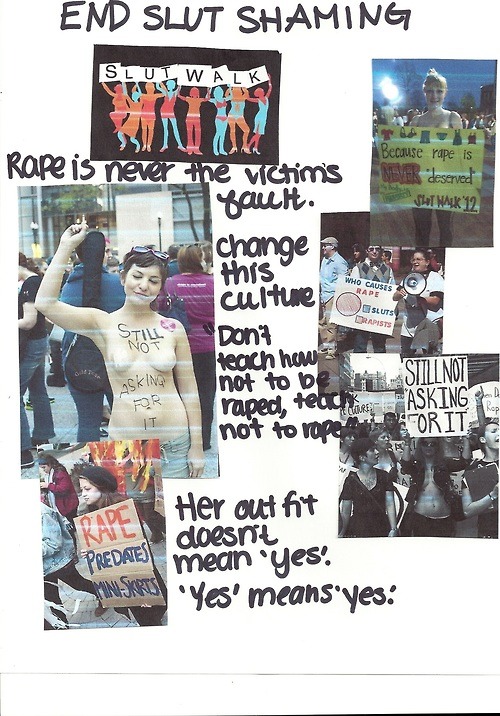 END SLUT SHAMING
SLUT WALK
Rape is never the victim's
fault.
Because rape is
NEVER deserved
SLUT WALK '12
change
this
culture
STILL
NOT
ASKING
FOR
IT
WHO CAUSES
RAPE
SLUTS
RAPISTS
"Don't
teach how
not to be
raped, teach
not to rape"
STILL NOT
ASKING
FOR IT
CULTURE
RAPE
PREDATES
MINI-SKIRTS
Her out fit
doesn't
mean 'yes'.
'Yes' means 'yes'.